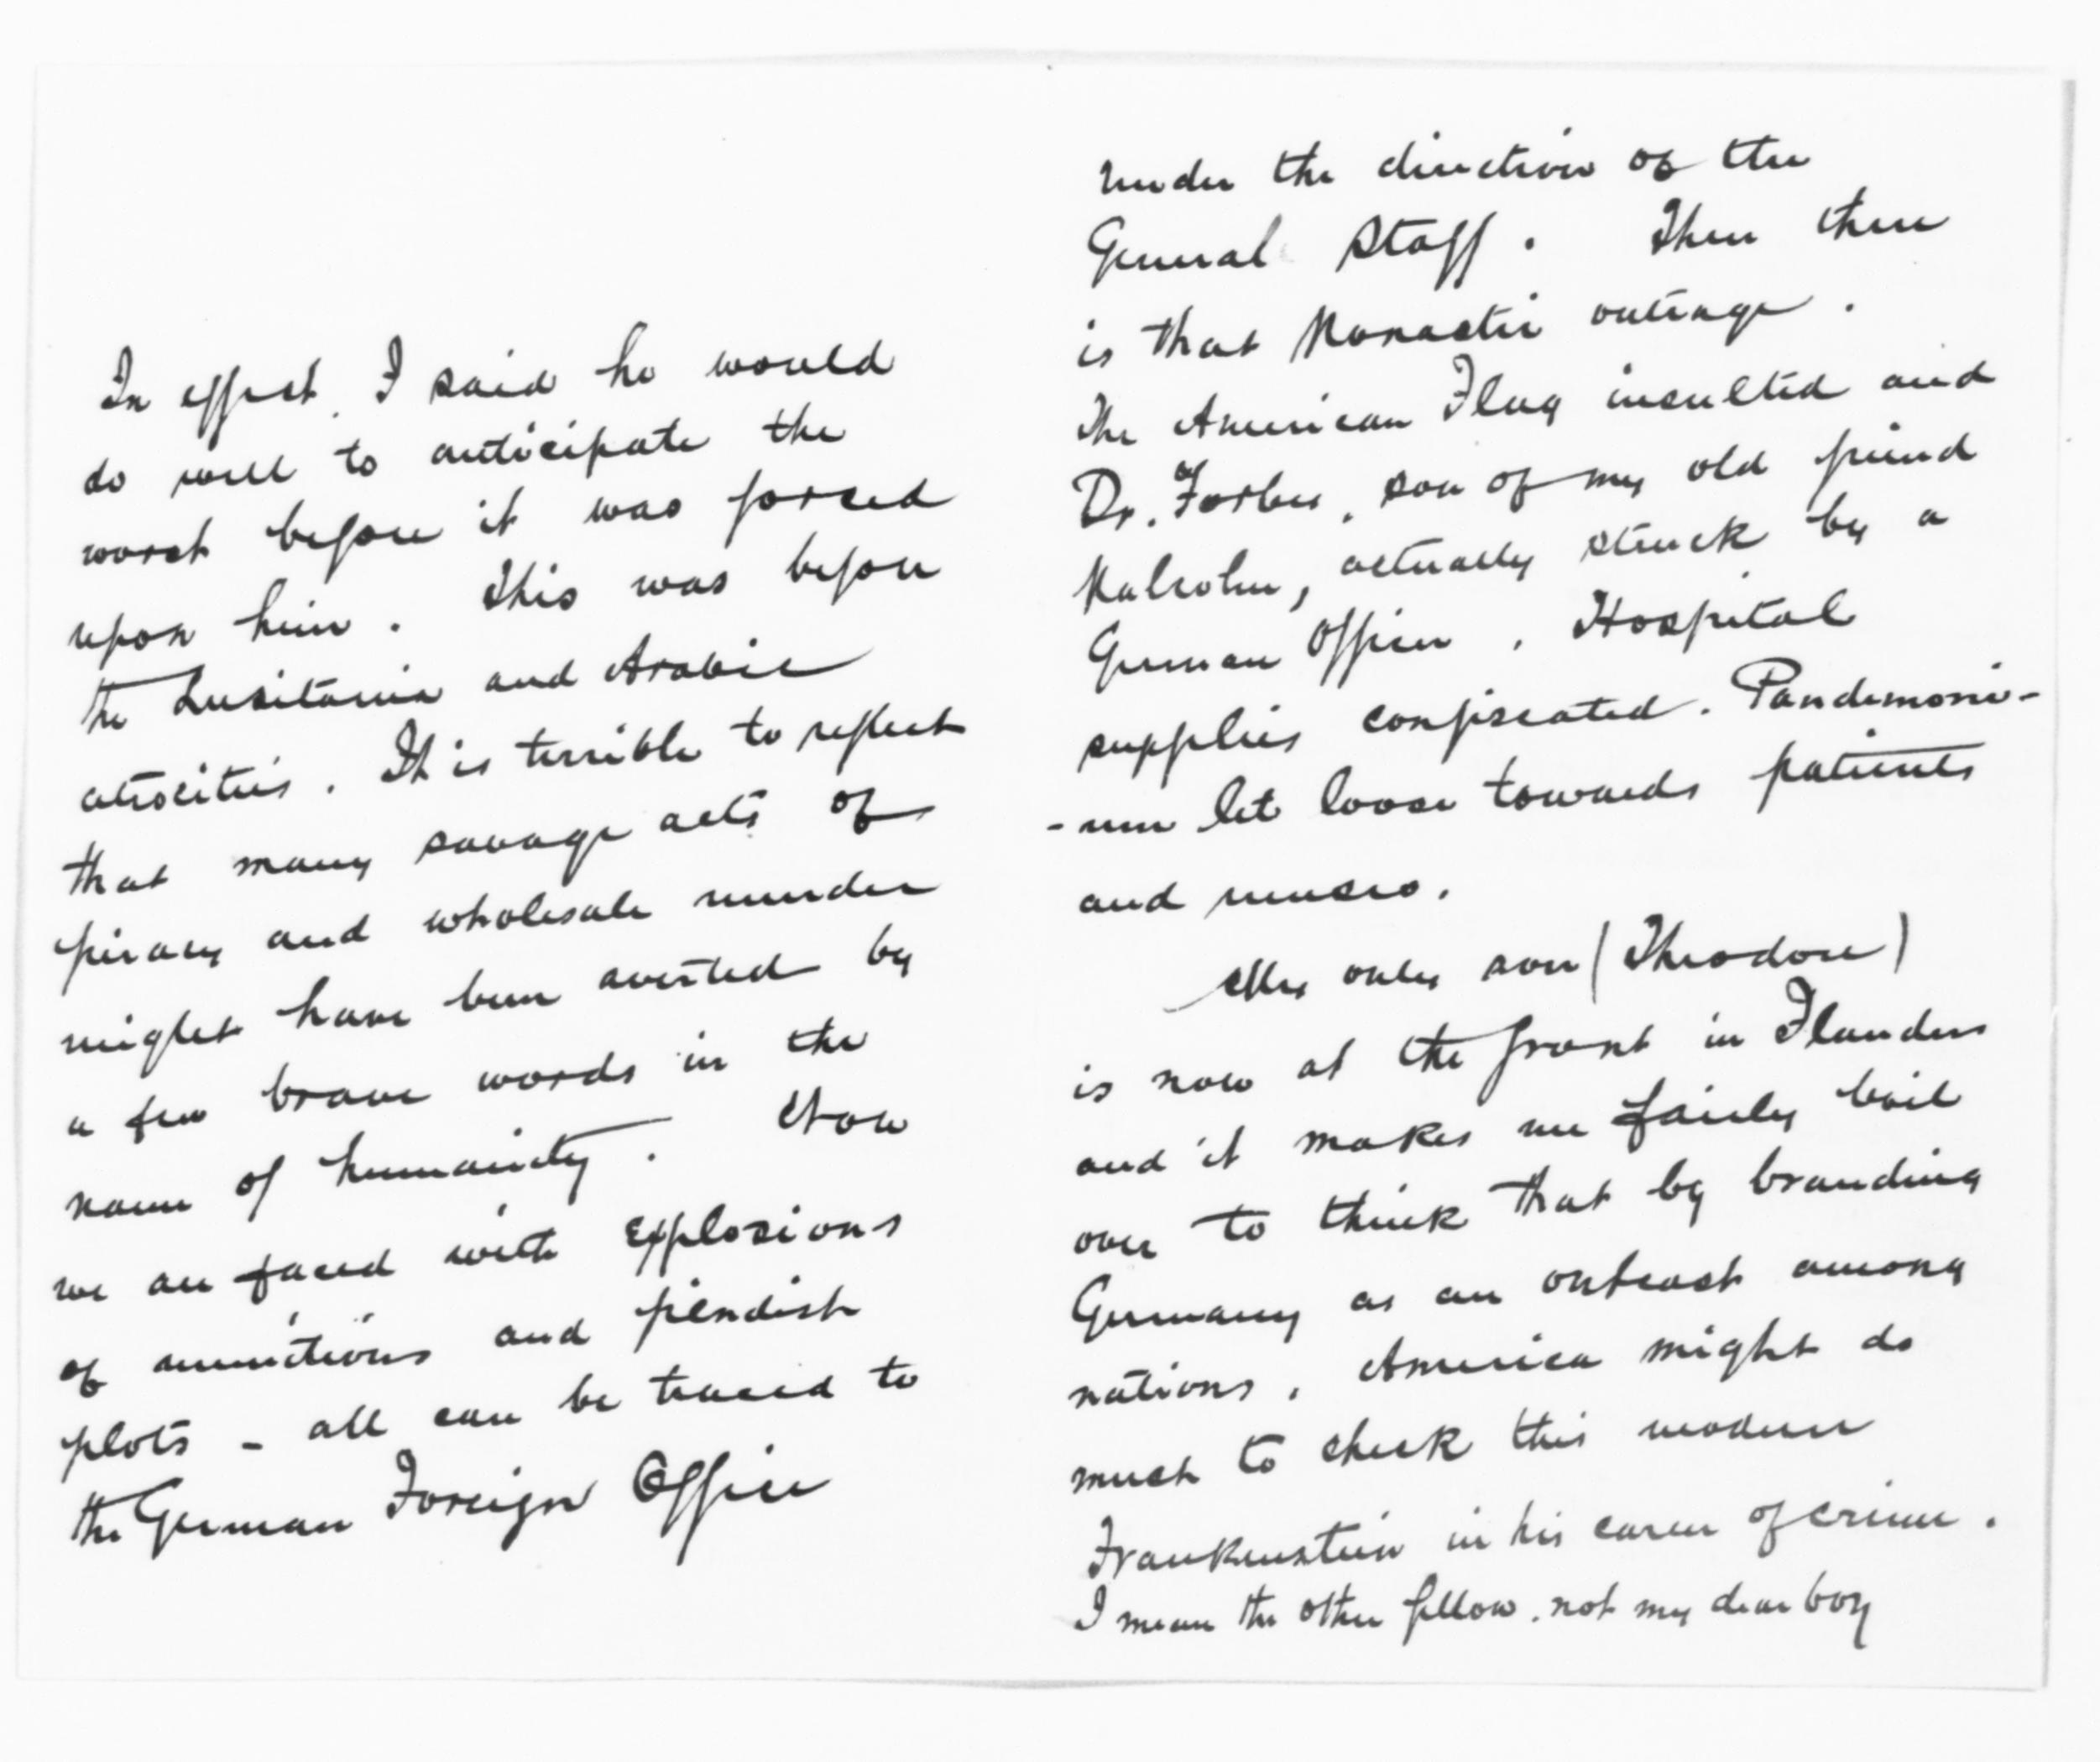 In effect, I said he would
do well to anticipate the
worst before it was forced
upon him. This was before
the Lusitania and Arabic
atrocities. It is terrible to reflect
that many savage acts of
piracy and wholesale murder
might have been averted by
a few brave words in the
name of humanity. Now
we are faced with explosions
of munitions and fiendish
plots - all can be traced to
the German Foreign Office
under the direction of the
General Staff. Then there
is that Monastir outrage.
The American Flag insulted and
Dr. Forbes, son of my old friend
Malcolm, actually struck by a
German Officer. Hospital
supplies confiscated. Pandemoni-
-um let loose towards patients
and nurses.
My only son (Theodore)
is now at the front in Flanders
and it makes me fairly boil
over to think that by branding
Germany as an outcast among
nations, America might do
much to check this modern
Frankenstein in his career of crime.
I mean the other fellow, not my dear boy